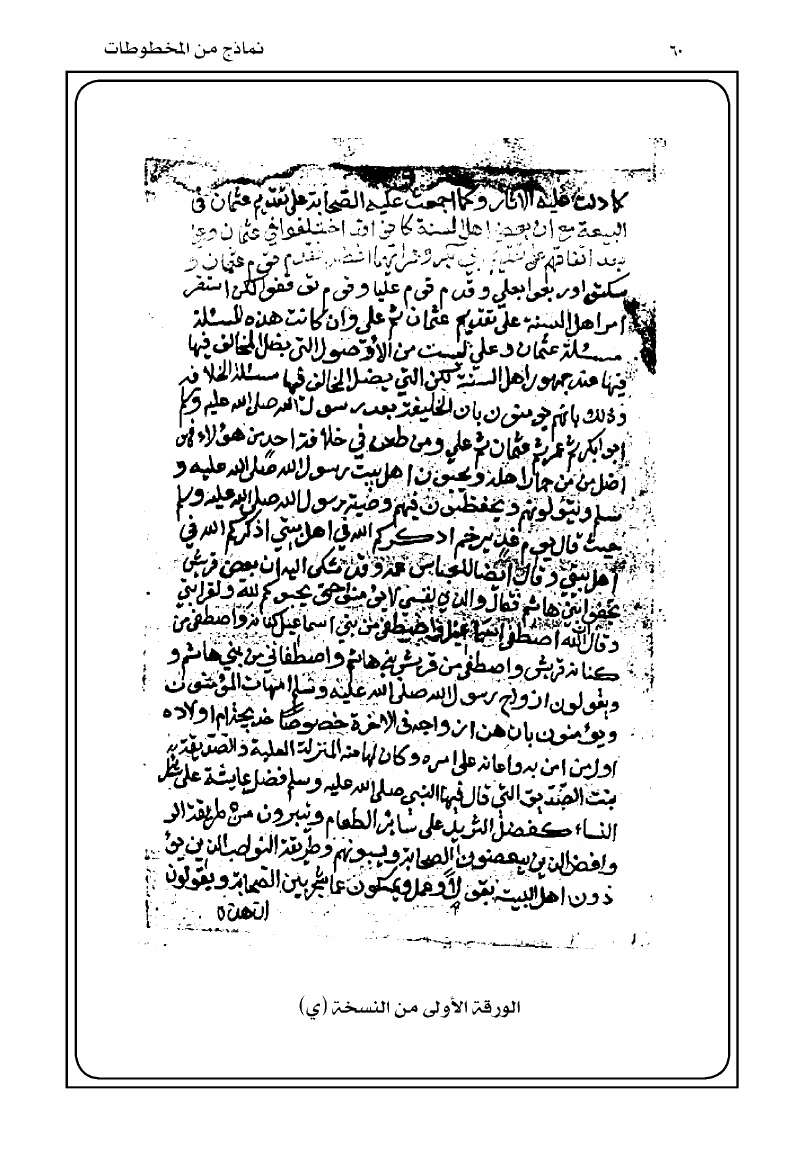 ٦٠
نماذج من المخطوطات
كما دلت عليه الاثار وكما اجمعت عليه الصحابة على تقديم عثمان في
البيعة مع ان بعض اهل السنة كانوا قد اختلفوا في عثمان وعلي
بعد اتفاقهم على تقديم ابي بكر وعمر ايهما افضل فقدم قوم عثمان و
سكتوا وربعوا بعلي وقدم قوم عليا وقوم توقفوا لكن استقر
امر اهل السنة على تقديم عثمان ثم علي وان كانت هذه المسئلة
مسئلة عثمان وعلي ليست من الاصول التي يضلل المخالف فيها
فيها عند جمهور اهل السنة لكن التي يضلل المخالف فيها مسئلة الخلافه
وذلك بانهم يومنون بان الخليفة بعد رسول الله صلى الله عليه وسلم
ابو بكر ثم عمر ثم عثمان ثم علي ومن طعن في خلافة احد من هؤلاء فهو
اضل من حمار اهله ويحبون اهل بيت رسول الله صلى الله عليه و
سلم ويتولونهم ويحفظون فيهم وصية رسول الله صلى الله عليه وسلم
حيث قال يوم غدير خم اذكركم الله في اهل بيتي اذكركم الله في
اهل بيتي وقال ايضا للعباس عمه وقد شكى اليه ان بعض قريش
يجفو بني هاشم فقال والذي نفسي لا يؤمنوا حتى يحبوكم لله ولقرابتي
وقال الله اصطفى اسماعيل واصطفى من بني اسماعيل كنانة واصطفى من
كنانة قريش واصطفى من قريش بني هاشم واصطفاني من بني هاشم و
ويقولون ازواج رسول الله صلى الله عليه وسلم امهات المؤمنون
ويؤمنون بان هن ازواجه في الاخرة خصوصا خديجة ام اولاده
اول من امن به واعانه على امره وكان لها منه المنزلة العلية والصديقة
بنت الصديق التي قال فيها النبي صلى الله عليه وسلم فضل عايشة على
النساء كفضل الثريد على سائر الطعام ويتبرون من طريقة الر
وافض الذين يبغضون الصحابة ويسبونهم وطريقة النواصب الذين يؤ
ذون اهل البيت بقول او عمل ويمسكون عما شجر بين الصحابة ويقولون
ان هذه
الورقة الأولى من النسخة (ي)